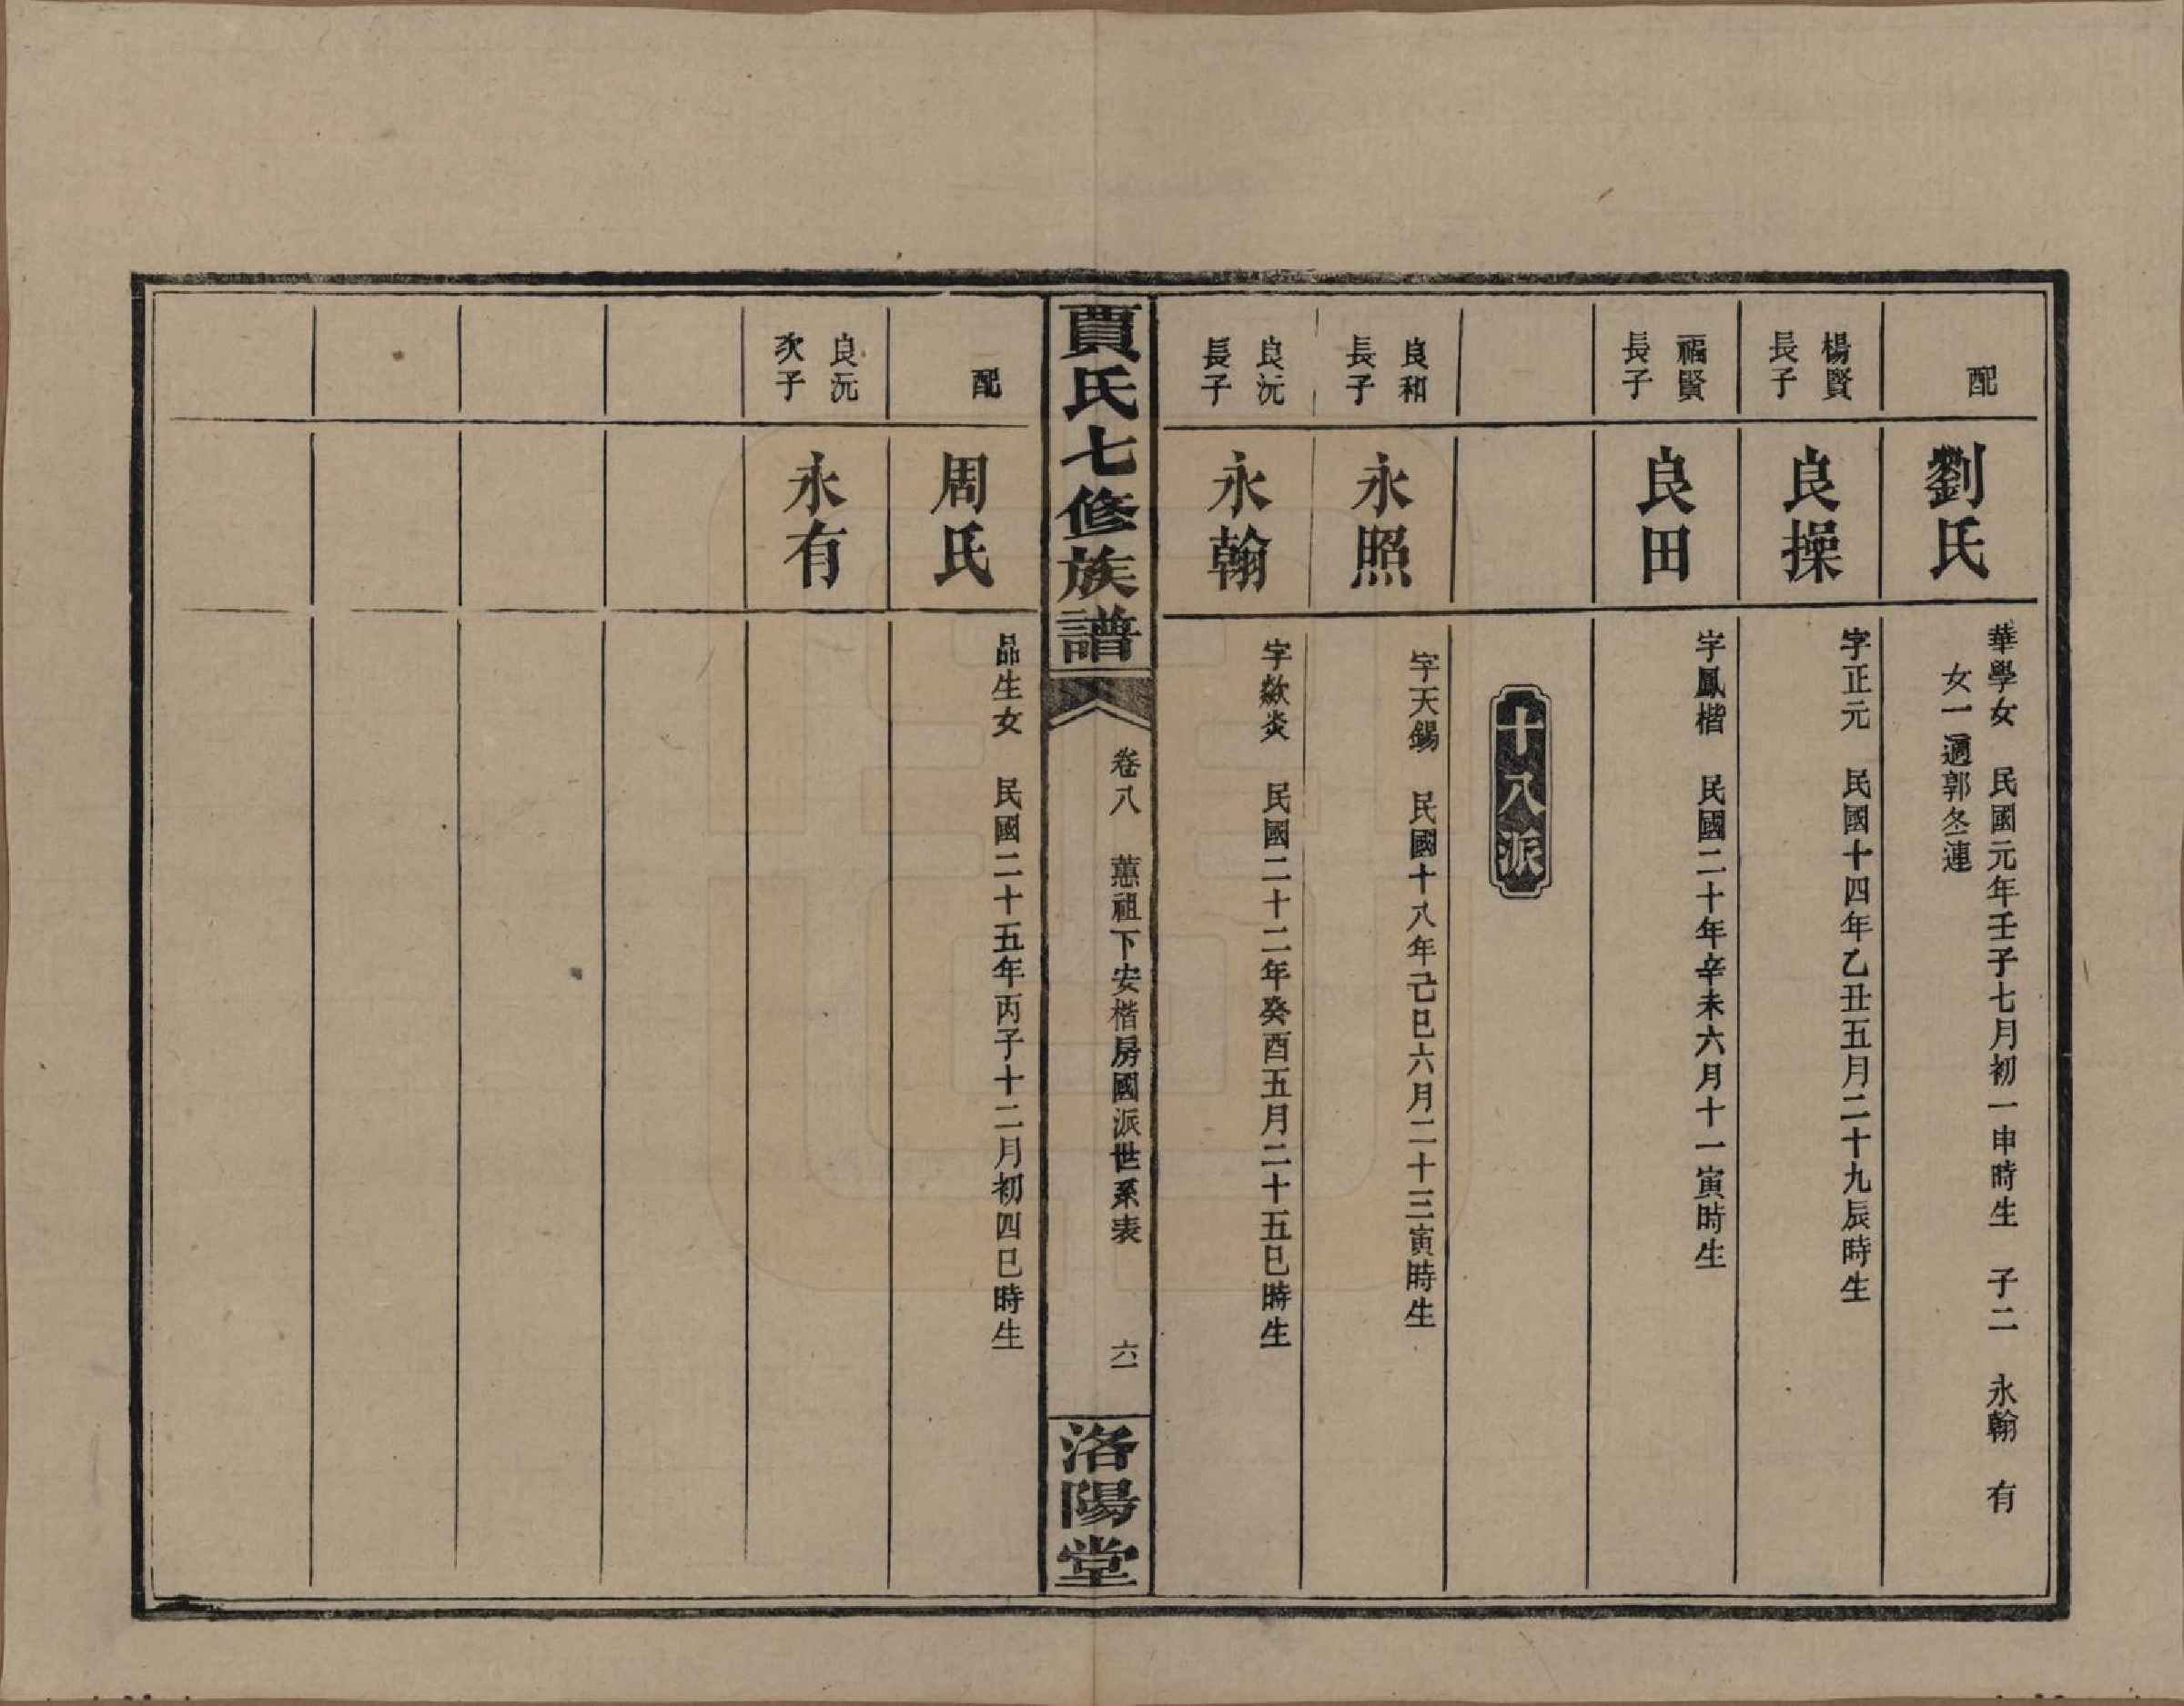 配
劉氏
華學女　民國元年壬子七月初一申時生　子二　永翰　有
女一適郭冬連
楊賢
長子
良操
字正元　民國十四年乙丑五月二十九辰時生
福賢
長子
良田
字鳳楷　民國二十年辛未六月十一寅時生
十八派
良和
長子
永照
字天錫　民國十八年己巳六月二十三寅時生
良沅
長子
永翰
字歘炎　民國二十二年癸酉五月二十五巳時生
賈氏七修族譜
卷八　蕙祖下安楷房國派世系表　六一
洛陽堂
配
周氏
品生女　民國二十五年丙子十二月初四巳時生
良沅
次子
永有